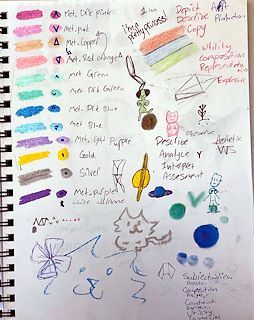 Met. Drk Pink
Met. Pink
Met. Copper
Met. Red orange
Met Green
Met. Drk Green
Met. Drk Blue
Met. Blue
Met. light Purple
Gold
Silver
Met. Purple
I'm a
Pretty Princess!
Depict
Describe
Copy
Art
Production
Utility
Composition
Expression
Observe
Describe
Analyze
Interpret
Assessment
Aesthetic
VTS
Subject
View
Composition
Content
Expression
Utility